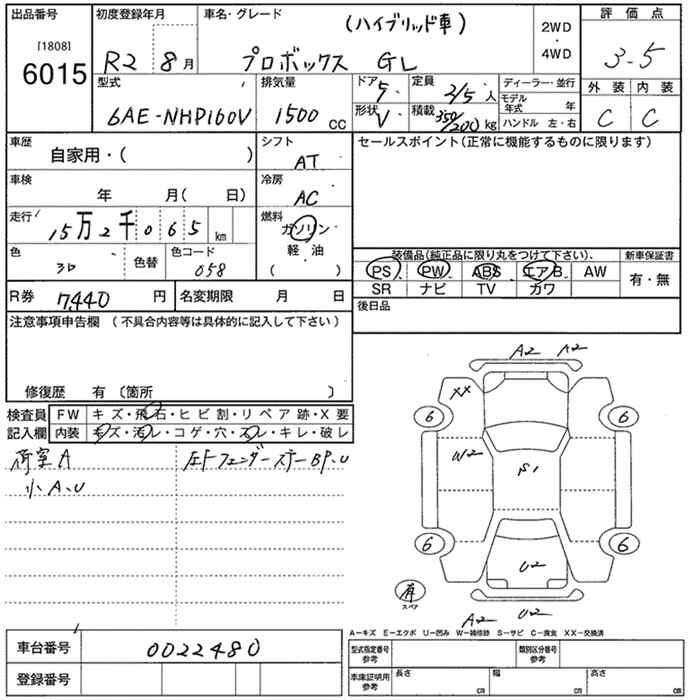 出品番号 初度登録年月 車名・グレード (ハイブリッド車) 2WD・4WD 評価点
[1808]
6015 R2 8月 プロボックス GL 3.5
型式 排気量 ドア 5 定員 2/5人 ディーラー・並行 外装 内装
6AE-NHP160V 1500 CC 形状 V 積載 350/200 kg モデル年式 年 C C
ハンドル 左・右
車歴 自家用・( ) シフト AT セールスポイント(正常に機能するものに限ります)
車検 年 月( 日) 冷房 AC
走行 15万2千065 km 燃料 ガソリン
軽・油
( )
色 色替 色コード 058
装備品(純正品に限り丸をつけて下さい). 新車保証書
PS PW ABS エアB AW 有・無
SR ナビ TV カワ
R券 7,440 円 名変期限 月 日 後日品
注意事項申告欄 (不具合内容等は具体的に記入して下さい)
修復歴 有 〔箇所 〕
検査員記入欄 FW キズ・飛石・ヒビ割・リペア跡・X要
内装 キズ・汚レ・コゲ・穴・スレ・キレ・破レ
荷室A
小A、U
A2 A2
XX
6 6
W2 S1
6 6
U2
有
スペア
A2 U2
A-キズ E-エクボ U-凹み W-補修跡 S-サビ C-腐食 XX-交換済
車台番号 0022480
登録番号
型式指定番号 参考 類別区分番号 参考
車庫証明用 参考 長さ cm 幅 cm 高さ cm